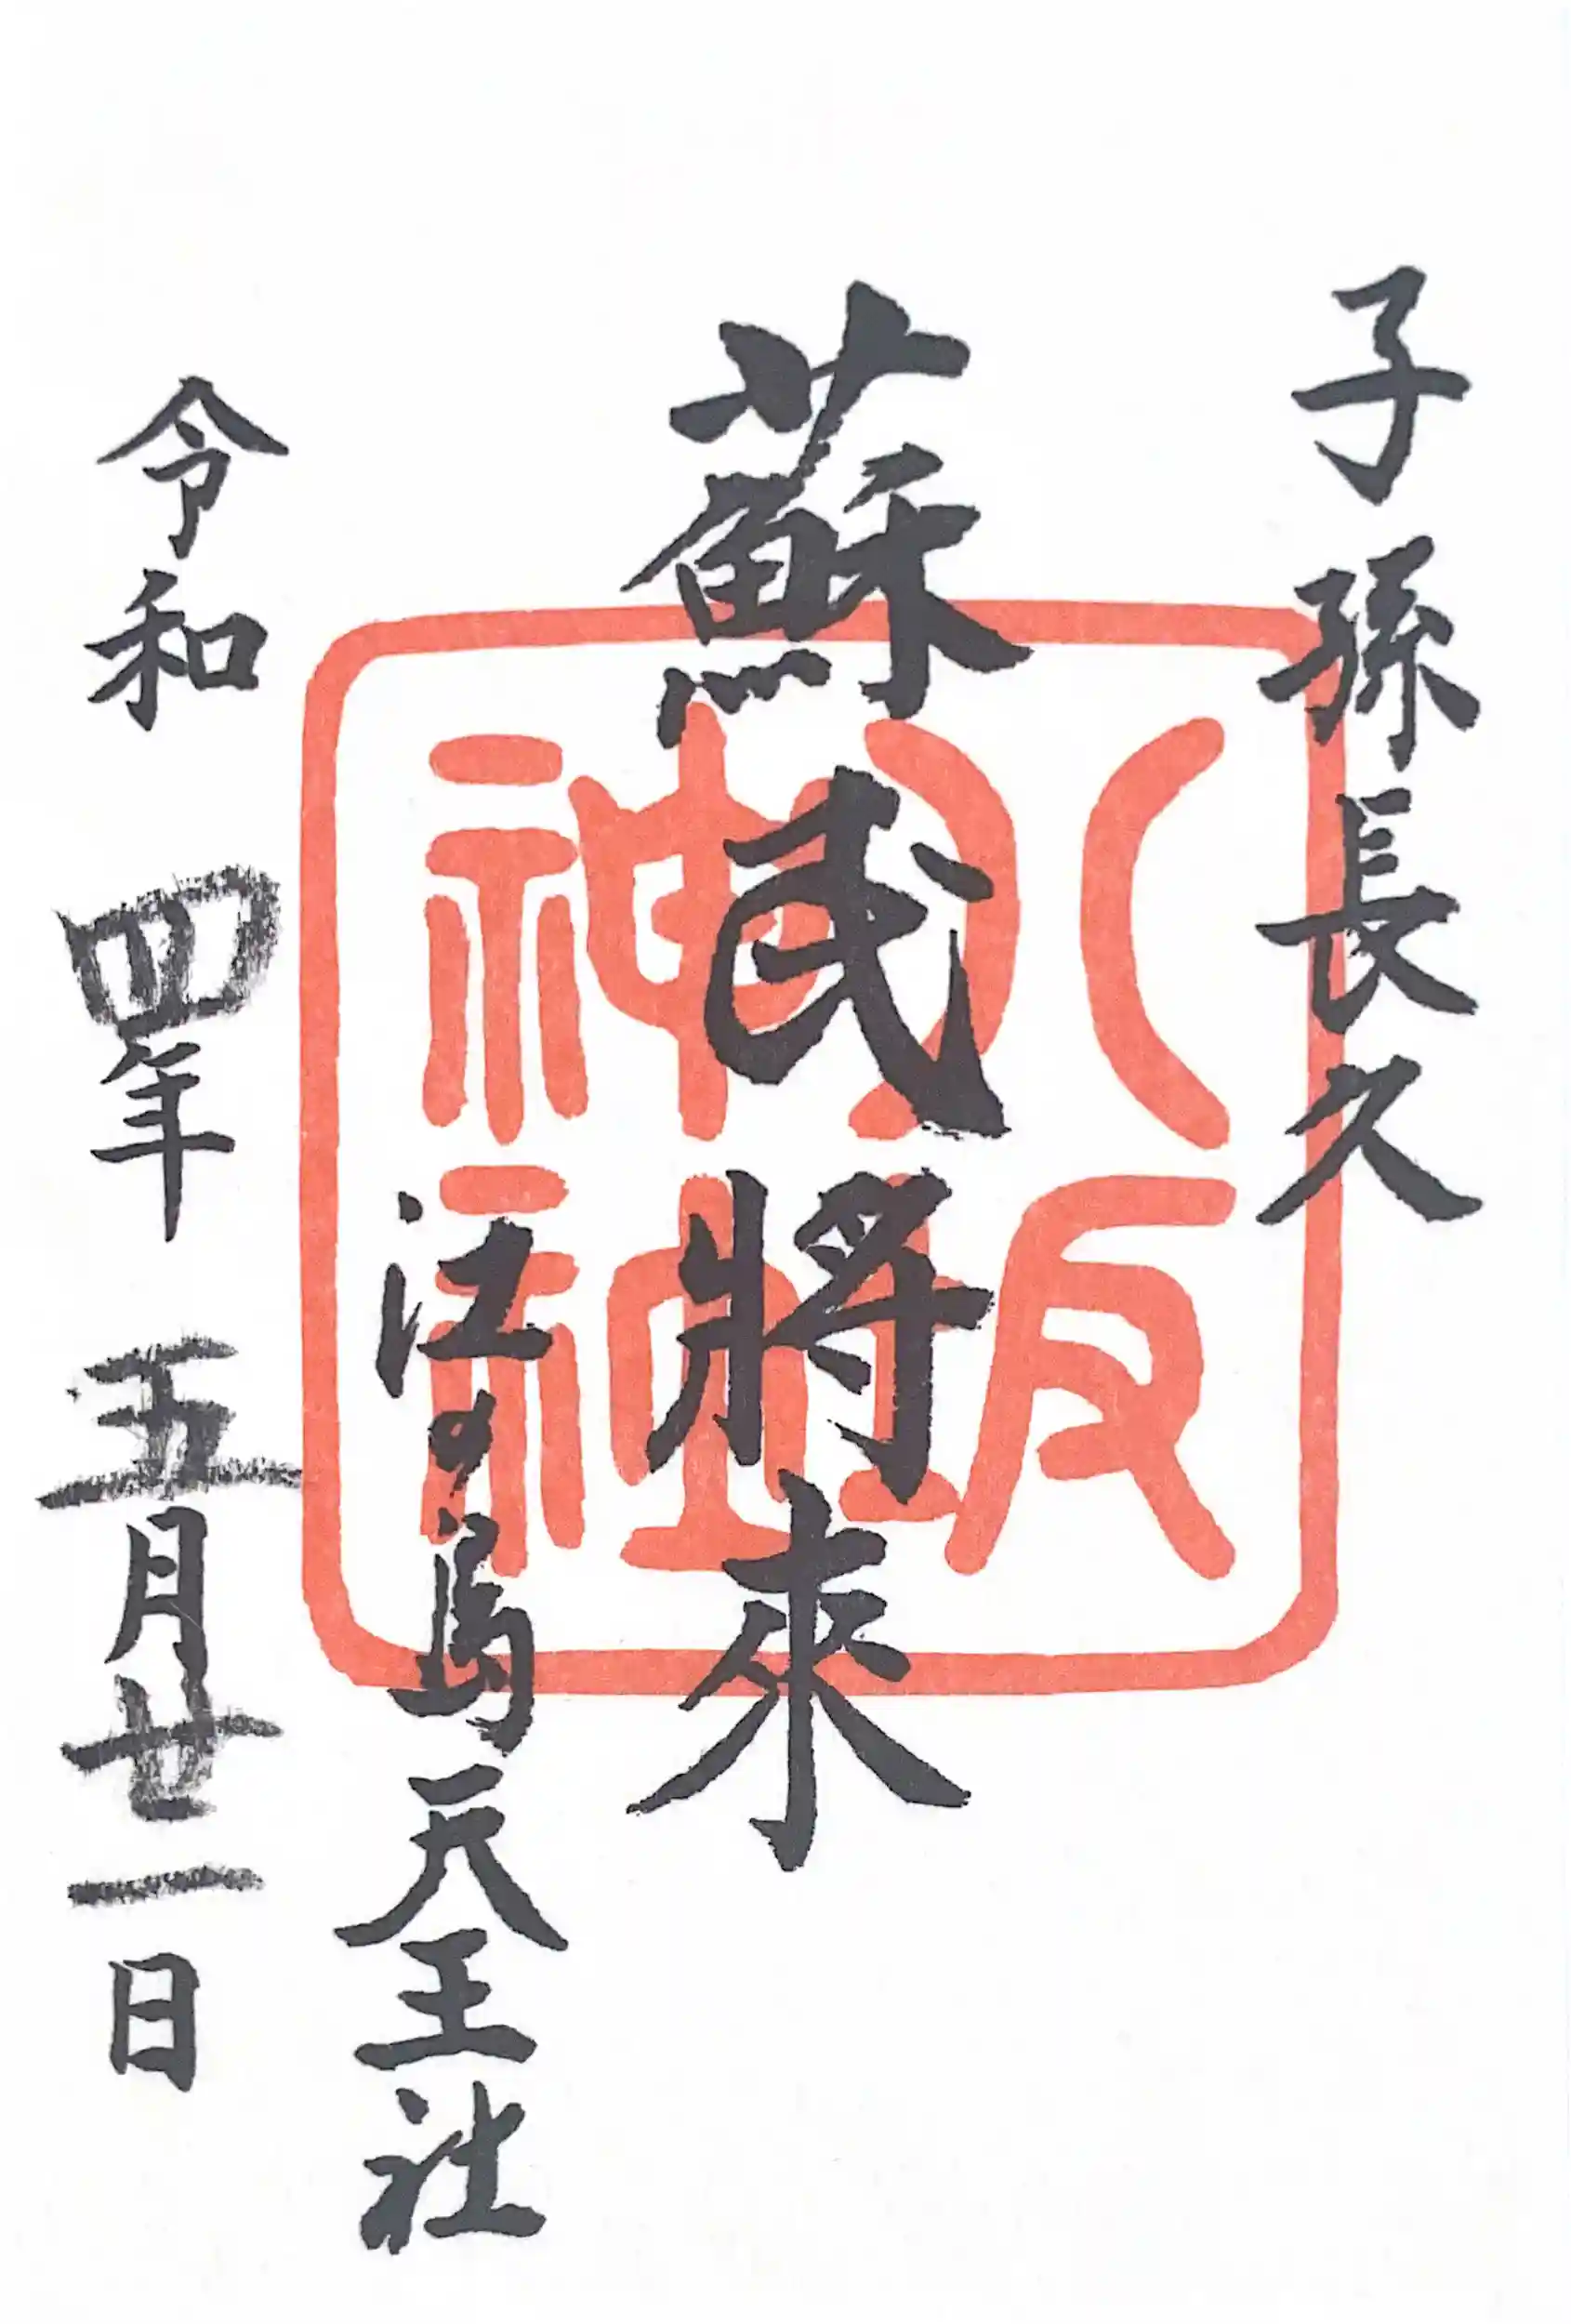 子孫長久
蘇民將來
八坂
神社
江の島天王社
令和四年五月廿一日